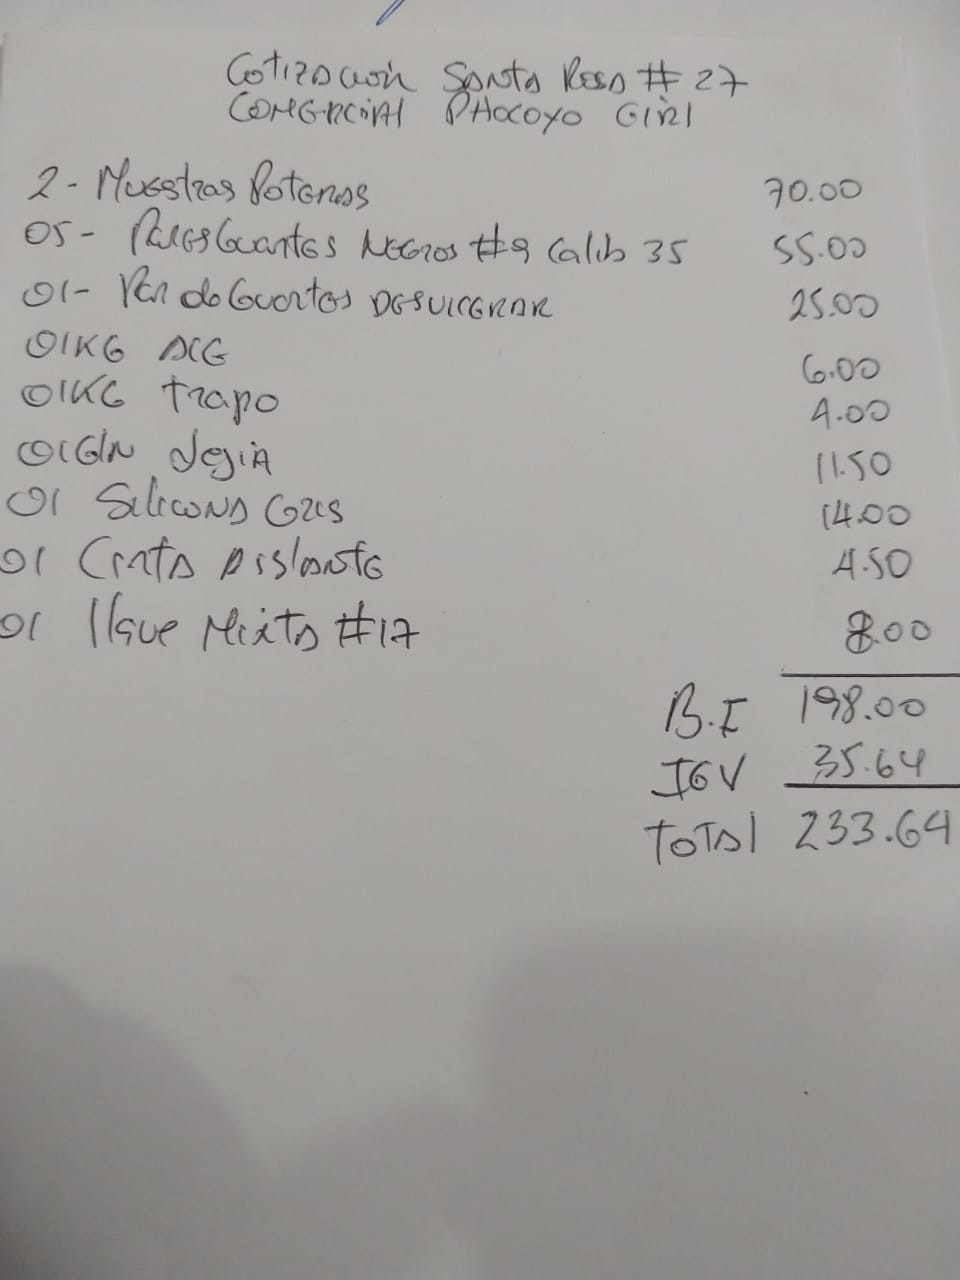 Cotización Santa Rosa # 27
COMERCIAL PHOCOYO GIRL
2 - Muestras Poteras 70.00
05 - Pares Guantes Negros #9 Calib 35 55.00
01 - Par de Guantos DESVICERAR 25.00
01KG ACE 6.00
01KG Trapo 4.00
01Gln Lejia 11.50
01 Silicona Gris 14.00
01 Cinta Aislante 4.50
01 llave Mixta #17 8.00
B.I 198.00
IGV 35.64
Total 233.64